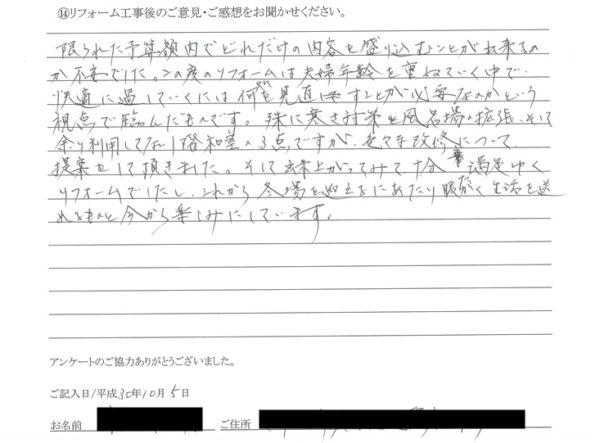 ⑭リフォーム工事後のご意見・ご感想をお聞かせください。
限られた予算額内でどれだけの内容を盛り込むことが出来るの
か不安でした。この度のリフォームは夫婦年齢を重ねていく中で
快適に過していくには何を見直すことが必要なのかという
視点で臨んだものです。殊に寒さ対策と風呂場の拡張、そして
余り利用してない 和室の3点ですが、色々な改修について
提案をして頂きました。そして出来上がってみて十分満足ゆく
リフォームでしたし、これから冬場を迎えるにあたり暖かく生活を送
れるものと今から楽しみにしています。
アンケートのご協力ありがとうございました。
ご記入日/平成30年10月5日
お名前 ご住所